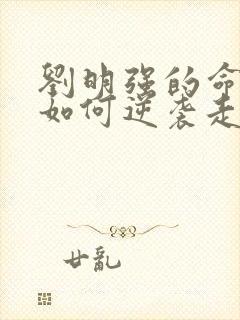 劉明强的命
如何逆袭走
廿亂